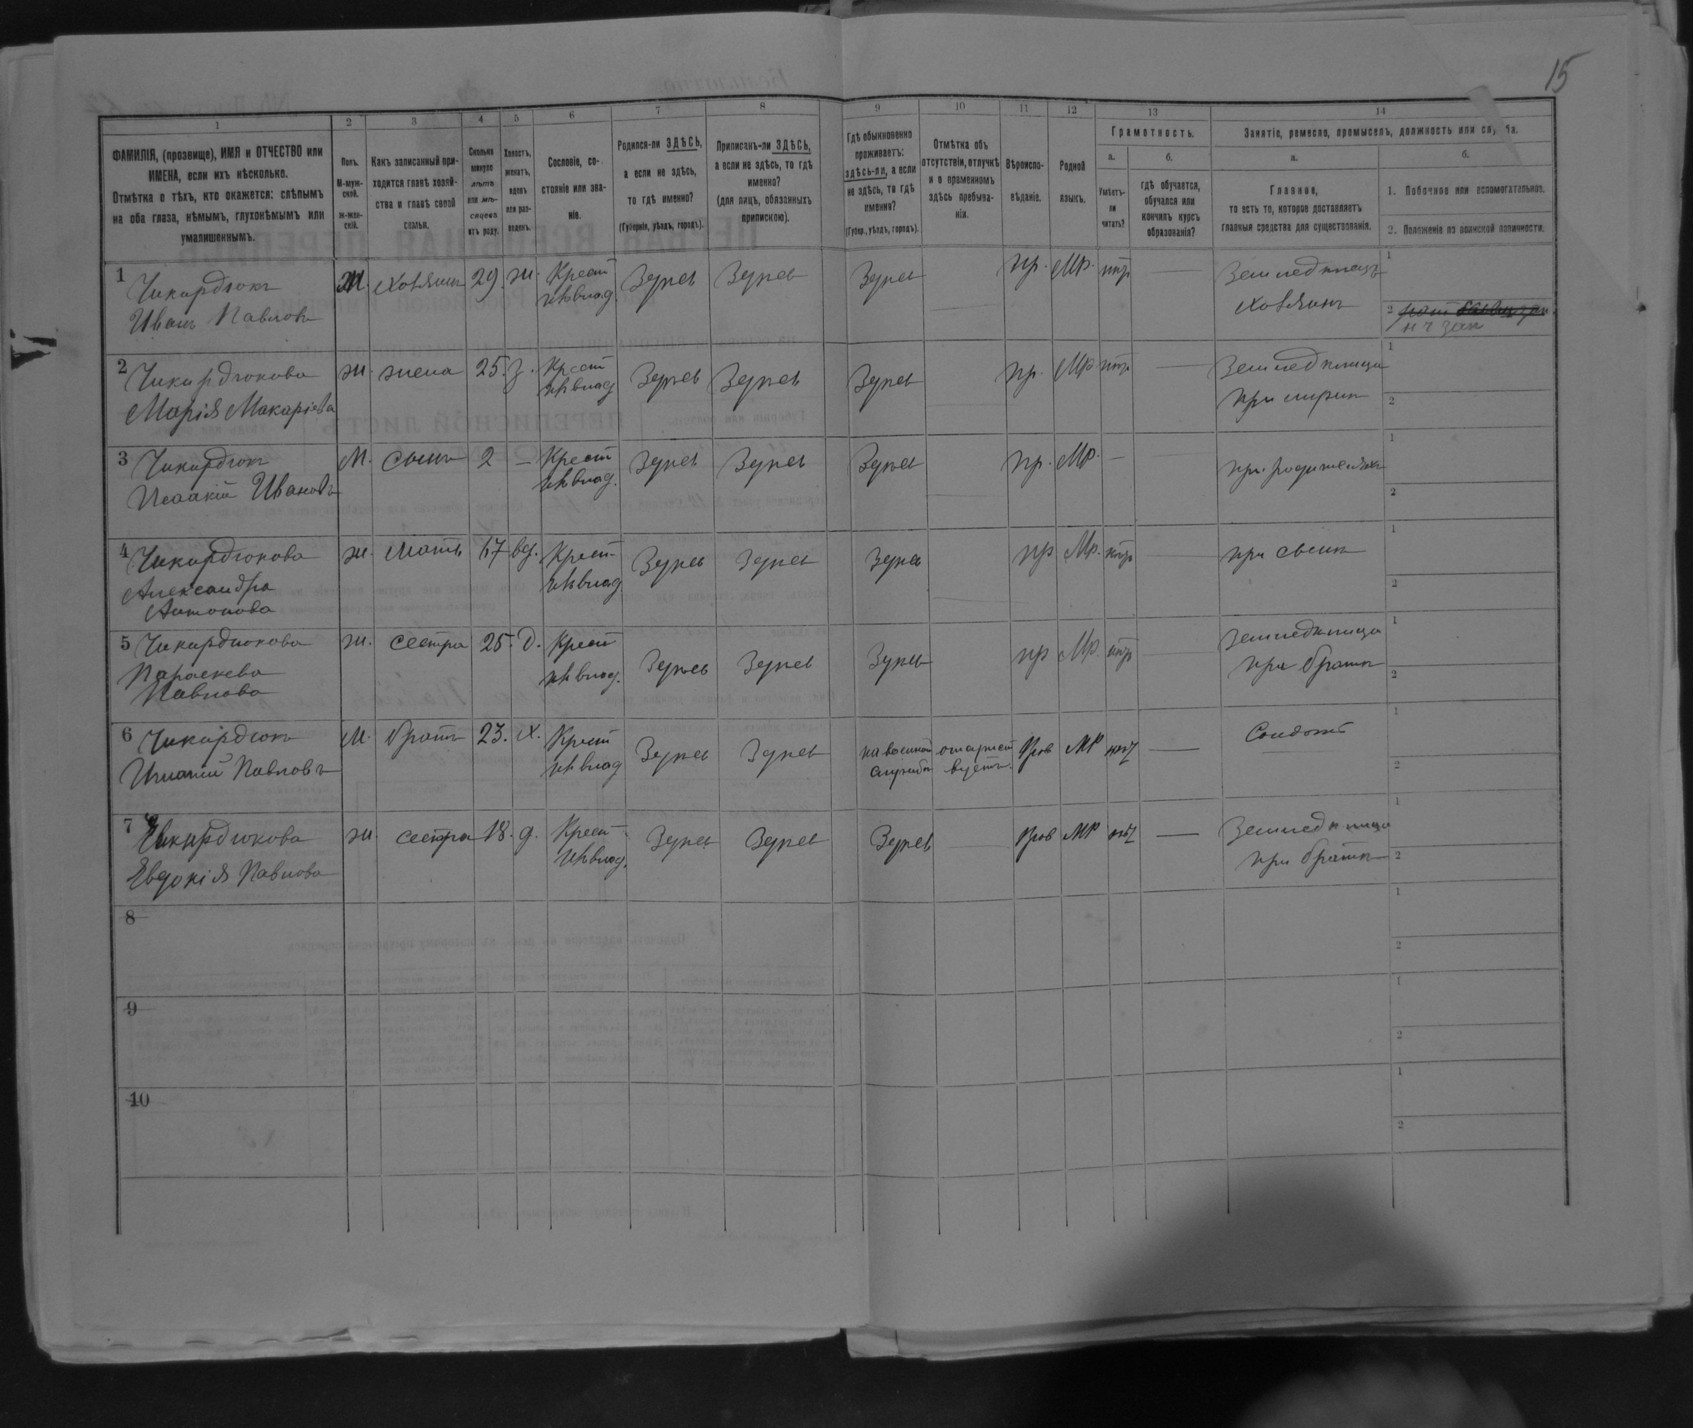 15
1 2 3 4 5 6 7 8 9 10 11 12 13 14
ФАМИЛІЯ, (прозвище), ИМЯ и ОТЧЕСТВО или
ИМЕНА, если ихъ нѣсколько.
Отмѣтка о тѣхъ, кто окажется: слѣпымъ
на оба глаза, нѣмымъ, глухонѣмымъ или
умалишеннымъ.
Полъ.
М-муж-
ской.
ж-жен-
скій.
Какъ записанный при-
ходится главѣ хозяй-
ства и главѣ своей
семьи.
Сколько
минуло
лѣтъ
или мѣ-
сяцевъ
отъ роду.
Холостъ,
женатъ,
вдовъ
или раз-
веденъ.
Сословіе, со-
стояніе или зва-
ніе.
Родился-ли ЗДѢСЬ,
а если не здѣсь,
то гдѣ именно?
(Губернія, уѣздъ, городъ).
Приписанъ-ли ЗДѢСЬ,
а если не здѣсь, то гдѣ
именно?
(для лицъ, обязанныхъ
припискою).
Гдѣ обыкновенно
проживаетъ:
здѣсь-ли, а если
не здѣсь, то гдѣ
именно?
(Губер., уѣздъ, городъ).
Отмѣтка объ
отсутствіи, отлучкѣ
и о временномъ
здѣсь пребыва-
ніи.
Вѣроиспо-
вѣданіе.
Родной
языкъ.
Грамотность.
а.
Умѣетъ-
ли
читать?
б.
гдѣ обучается,
обучался или
кончилъ курсъ
образованія?
Занятіе, ремесло, промыселъ, должность или служба.
а.
Главное,
то есть то, которое доставляетъ
главныя средства для существованія.
б.
1. Побочное или вспомогательное.
2. Положеніе по воинской повинности.
1 Чикирдюкъ
Иванъ Павловъ
хозяинъ 29. ж. Крест
Здѣсь Здѣсь Здѣсь пр. Мр. нѣтъ —
Земледѣлецъ
хозяинъ
1
2
2 Чикирдюкова
Марія Макаріева
ж. жена 25. з. Крест
Здѣсь Здѣсь Здѣсь пр. Мр нѣтъ —
Земледѣлица
при мужѣ
1
2
3 Чикирдюкъ
Исаакій Ивановъ
М. сынъ 2 — Крест
Здѣсь Здѣсь Здѣсь пр. Мр. —
при родителяхъ
1
2
4 Чикирдюкова
Александра
Антонова
ж. мать 47 вд. Крест
Здѣсь Здѣсь Здѣсь пр Мр. нѣтъ —
при сынѣ
1
2
5 Чикирдюкова
Параскева
Павлова
ж. сестра 25. д. Крест
Здѣсь Здѣсь Здѣсь пр Мр. нѣтъ —
Земледѣлица
при братѣ
1
2
6 Чикирдюкъ
Игнатій Павловъ
М. братъ 23. х. Крест
Здѣсь Здѣсь
на военной
службѣ
отсутст
вуетъ
прав МР нѣт —
Солдатъ
1
2
7 Чикирдюкова
Евдокія Павлова
ж. сестра 18. д. Крест
Здѣсь Здѣсь Здѣсь прав МР нѣт —
Земледѣлица
при братѣ
1
2
8
1
2
9
1
2
10
1
2